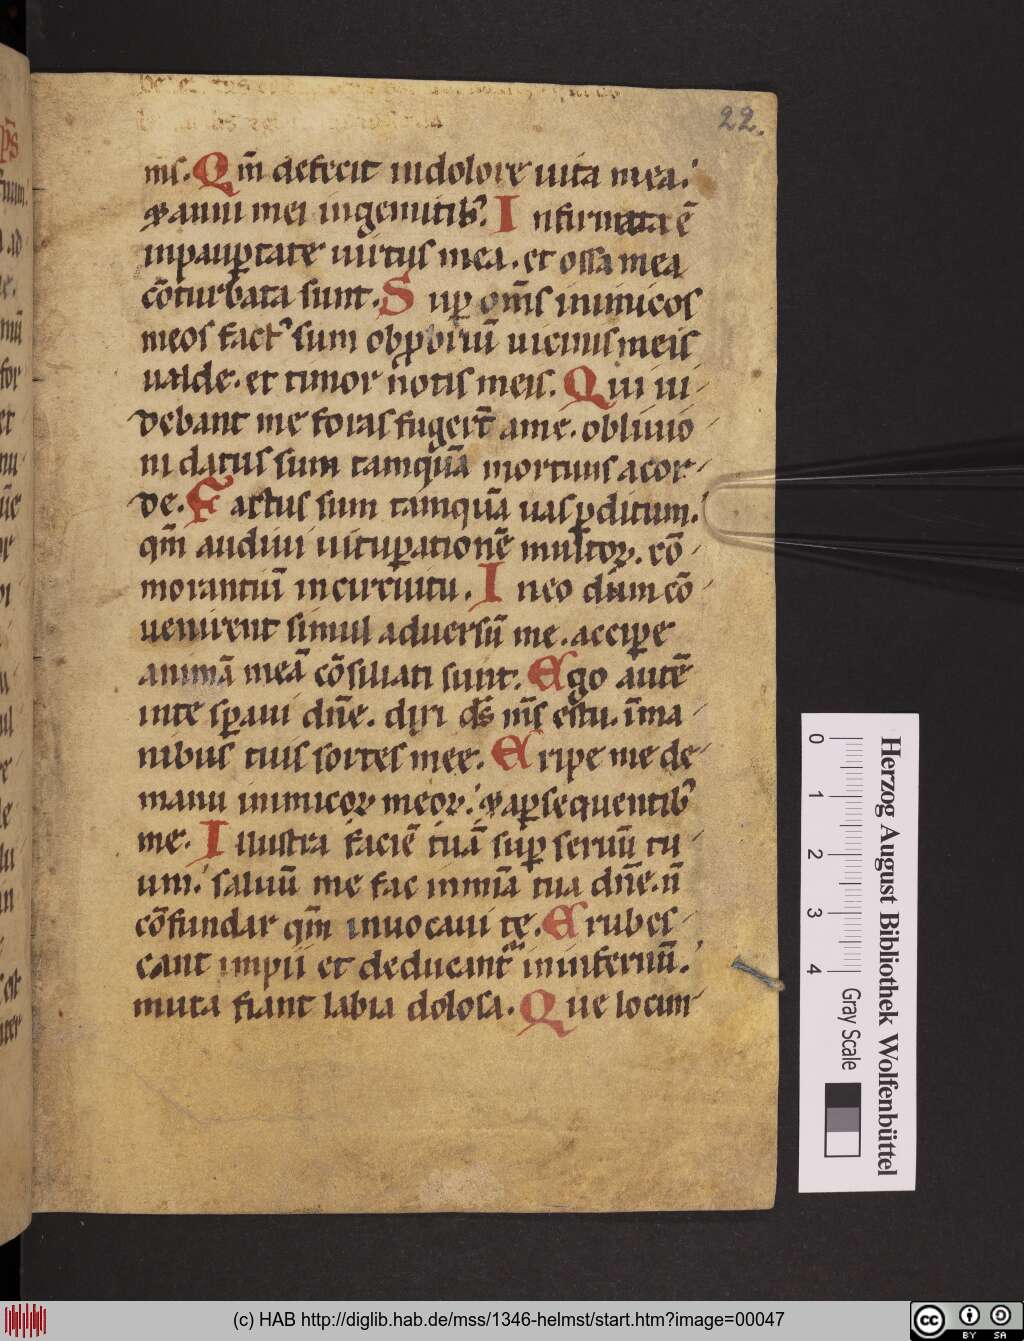 22.
ms. Qm̄ defecit in dolore uita mea.
⁊ anni mei in gemitib⁹. Infirmata ē
in paup̱tate uirtus mea. et ossa mea
cōturbata sunt. Sup̱ om̄s inimicos
meos fact⁹ sum obp̱briū uicinis meis
ualde. et timor notis meis. Qui ui
debant me foras fugert̄ a me. obliuio
ni datus sum tamquā mortuus a cor
de. Factus sum tamquā uas p̱ditum.
qm̄ audiui uitup̱ationē multoꝝ. cō
morantiū in circuitu. In eo dum cō
uenirent simul aduersū me. accip̱e
animā meā cōsiliati sunt. Ego autē
in te sp̱aui dn̄e. dixi ds̄ m̄s es tu. ī ma
nibus tuis sortes mee. Eripe me de
manu inimicoꝝ meoꝝ. ⁊ a p̱sequentib⁹
me. Illustra faciē tuā sup̱ seruū tu
um. saluū me fac in mīa tua dn̄e. n̄
cōfundar qm̄ inuocaui te. Erubes
cant impii et deducant̄ in infernū.
muta fiant labia dolosa. Que locun
Herzog August Bibliothek Wolfenbüttel
0 1 2 3 4
Gray Scale
(c) HAB http://diglib.hab.de/mss/1346-helmst/start.htm?image=00047
cc BY SA